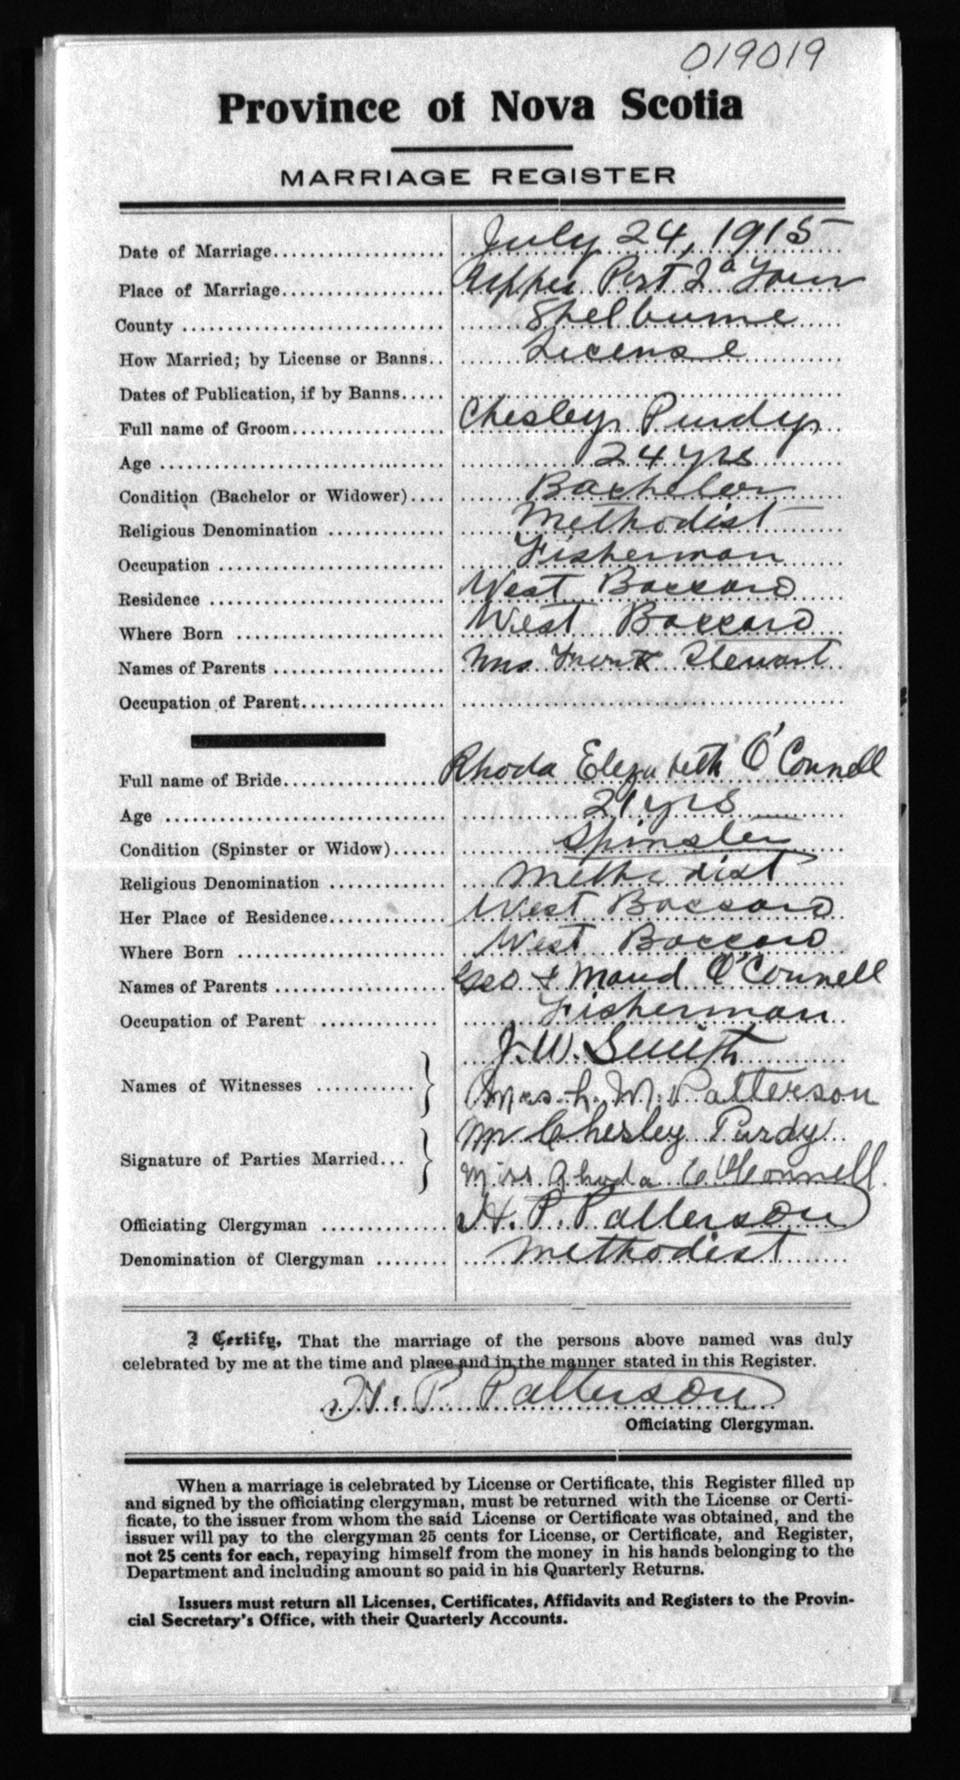 019019
Province of Nova Scotia
MARRIAGE REGISTER
Date of Marriage.................... July 24, 1915
Place of Marriage................... Upper Port La Tour
County .............................. Shelburne
How Married; by License or Banns.. License
Dates of Publication, if by Banns.....
Full name of Groom.................. Chesley Purdy
Age .............................. 24 yrs
Condition (Bachelor or Widower).... Bachelor
Religious Denomination ............. Methodist
Occupation .......................... Fisherman
Residence ........................... West Baccaro
Where Born ........................ West Baccaro
Names of Parents .................... Mrs Stewart
Occupation of Parent.................
Full name of Bride................... Rhoda Elizabeth O'Connell
Age ................................ 21 yrs
Condition (Spinster or Widow)...... Spinster
Religious Denomination ............. Methodist
Her Place of Residence.............. West Baccaro
Where Born ........................ West Baccaro
Names of Parents .................... Geo & Maud O'Connell
Occupation of Parent .............. Fisherman
J. W. Smith
Names of Witnesses ........... Mrs. H. M. Patterson
Mr Chesley Purdy
Signature of Parties Married... Miss Rhoda O'Connell.
Officiating Clergyman .............. H. P. Patterson
Denomination of Clergyman ........ Methodist
I Certify, That the marriage of the persons above named was duly
celebrated by me at the time and place and in the manner stated in this Register.
H. P. Patterson
Officiating Clergyman.
When a marriage is celebrated by License or Certificate, this Register filled up
and signed by the officiating clergyman, must be returned with the License or Certi-
ficate, to the issuer from whom the said License or Certificate was obtained, and the
issuer will pay to the clergyman 25 cents for License, or Certificate, and Register,
not 25 cents for each, repaying himself from the money in his hands belonging to the
Department and including amount so paid in his Quarterly Returns.
Issuers must return all Licenses, Certificates, Affidavits and Registers to the Provin-
cial Secretary's Office, with their Quarterly Accounts.